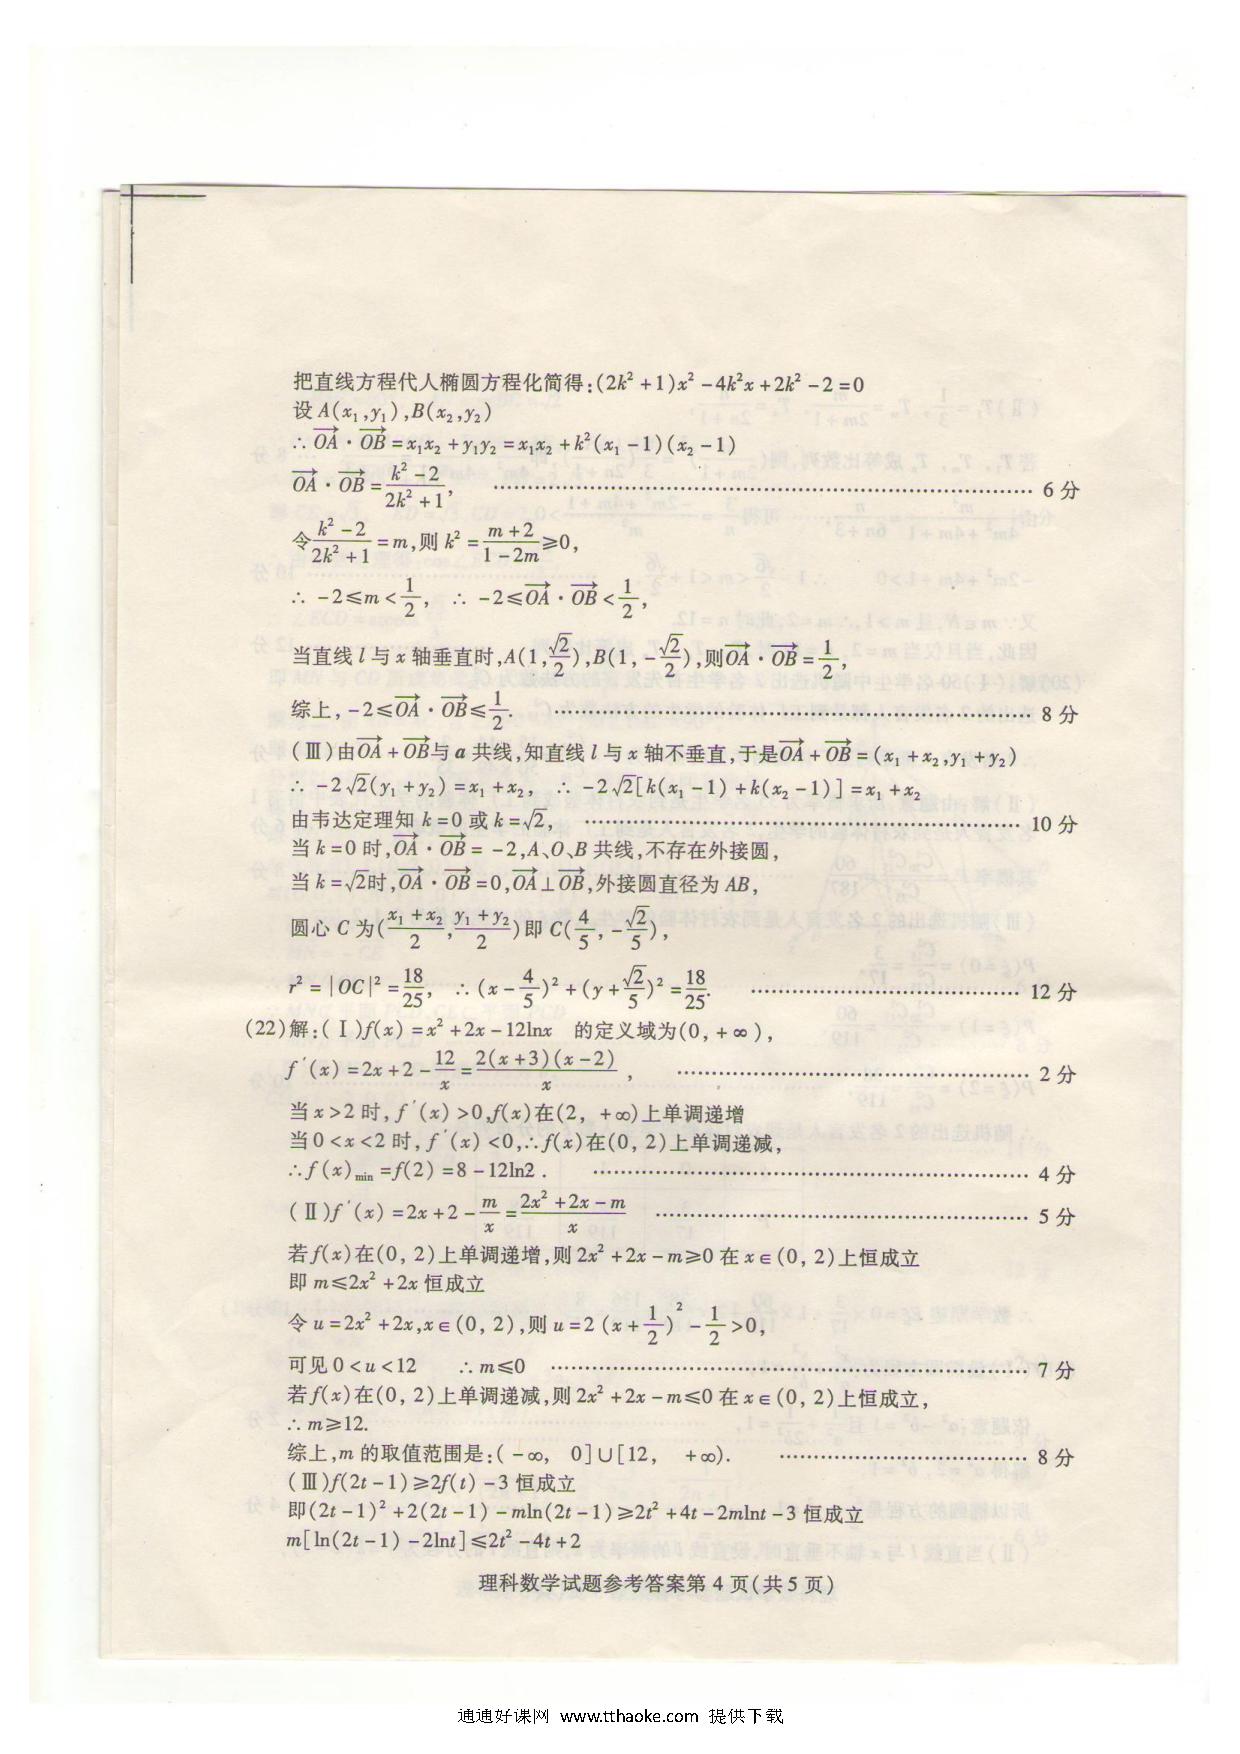 把直线方程代人椭圆方程化简得:(2k²+1)x²-4k²x+2k²-2=0
设 A(x₁,y₁),B(x₂,y₂)
∴ \overrightarrow{OA}·\overrightarrow{OB}=x₁x₂+y₁y₂=x₁x₂+k²(x₁-1)(x₂-1)
\overrightarrow{OA}·\overrightarrow{OB}=\frac{k²-2}{2k²+1}, …………………… 6 分
令\frac{k²-2}{2k²+1}=m,则 k²=\frac{m+2}{1-2m}≥0,
∴ -2≤m<\frac{1}{2}, ∴ -2≤\overrightarrow{OA}·\overrightarrow{OB}<\frac{1}{2},
当直线 l 与 x 轴垂直时,A(1,\frac{√2}{2}),B(1,-\frac{√2}{2}),则\overrightarrow{OA}·\overrightarrow{OB}=\frac{1}{2},
综上,-2≤\overrightarrow{OA}·\overrightarrow{OB}≤\frac{1}{2}. …………………… 8 分
(Ⅲ)由\overrightarrow{OA}+\overrightarrow{OB}与 a 共线,知直线 l 与 x 轴不垂直,于是\overrightarrow{OA}+\overrightarrow{OB}=(x₁+x₂,y₁+y₂)
∴ -2√2(y₁+y₂)=x₁+x₂, ∴ -2√2[k(x₁-1)+k(x₂-1)]=x₁+x₂
由韦达定理知 k=0 或 k=√2, …………………… 10 分
当 k=0 时,\overrightarrow{OA}·\overrightarrow{OB}=-2,A、O、B 共线,不存在外接圆,
当 k=√2时,\overrightarrow{OA}·\overrightarrow{OB}=0,\overrightarrow{OA}⊥\overrightarrow{OB},外接圆直径为 AB,
圆心 C 为(\frac{x₁+x₂}{2},\frac{y₁+y₂}{2})即 C(\frac{4}{5},-\frac{√2}{5}),
r²=|OC|²=\frac{18}{25}, ∴ (x-\frac{4}{5})²+(y+\frac{√2}{5})²=\frac{18}{25}. …………………… 12 分
(22)解:(Ⅰ)f(x)=x²+2x-12lnx 的定义域为(0,+∞),
f′(x)=2x+2-\frac{12}{x}=\frac{2(x+3)(x-2)}{x}, …………………… 2 分
当 x>2 时,f′(x)>0,f(x)在(2,+∞)上单调递增
当 0<x<2 时,f′(x)<0,∴f(x)在(0,2)上单调递减,
∴f(x)min=f(2)=8-12ln2. …………………… 4 分
(Ⅱ)f′(x)=2x+2-\frac{m}{x}=\frac{2x²+2x-m}{x} …………………… 5 分
若 f(x)在(0,2)上单调递增,则 2x²+2x-m≥0 在 x∈(0,2)上恒成立
即 m≤2x²+2x 恒成立
令 u=2x²+2x,x∈(0,2),则 u=2(x+\frac{1}{2})²-\frac{1}{2}>0,
可见 0<u<12 ∴ m≤0 …………………… 7 分
若 f(x)在(0,2)上单调递减,则 2x²+2x-m≤0 在 x∈(0,2)上恒成立,
∴ m≥12.
综上,m 的取值范围是:(-∞, 0]∪[12, +∞). …………………… 8 分
(Ⅲ)f(2t-1)≥2f(t)-3 恒成立
即(2t-1)²+2(2t-1)-mln(2t-1)≥2t²+4t-2mlnt-3 恒成立
m[ln(2t-1)-2lnt]≤2t²-4t+2
理科数学试题参考答案第 4 页(共 5 页)
通通好课网 www.tthaoke.com 提供下载